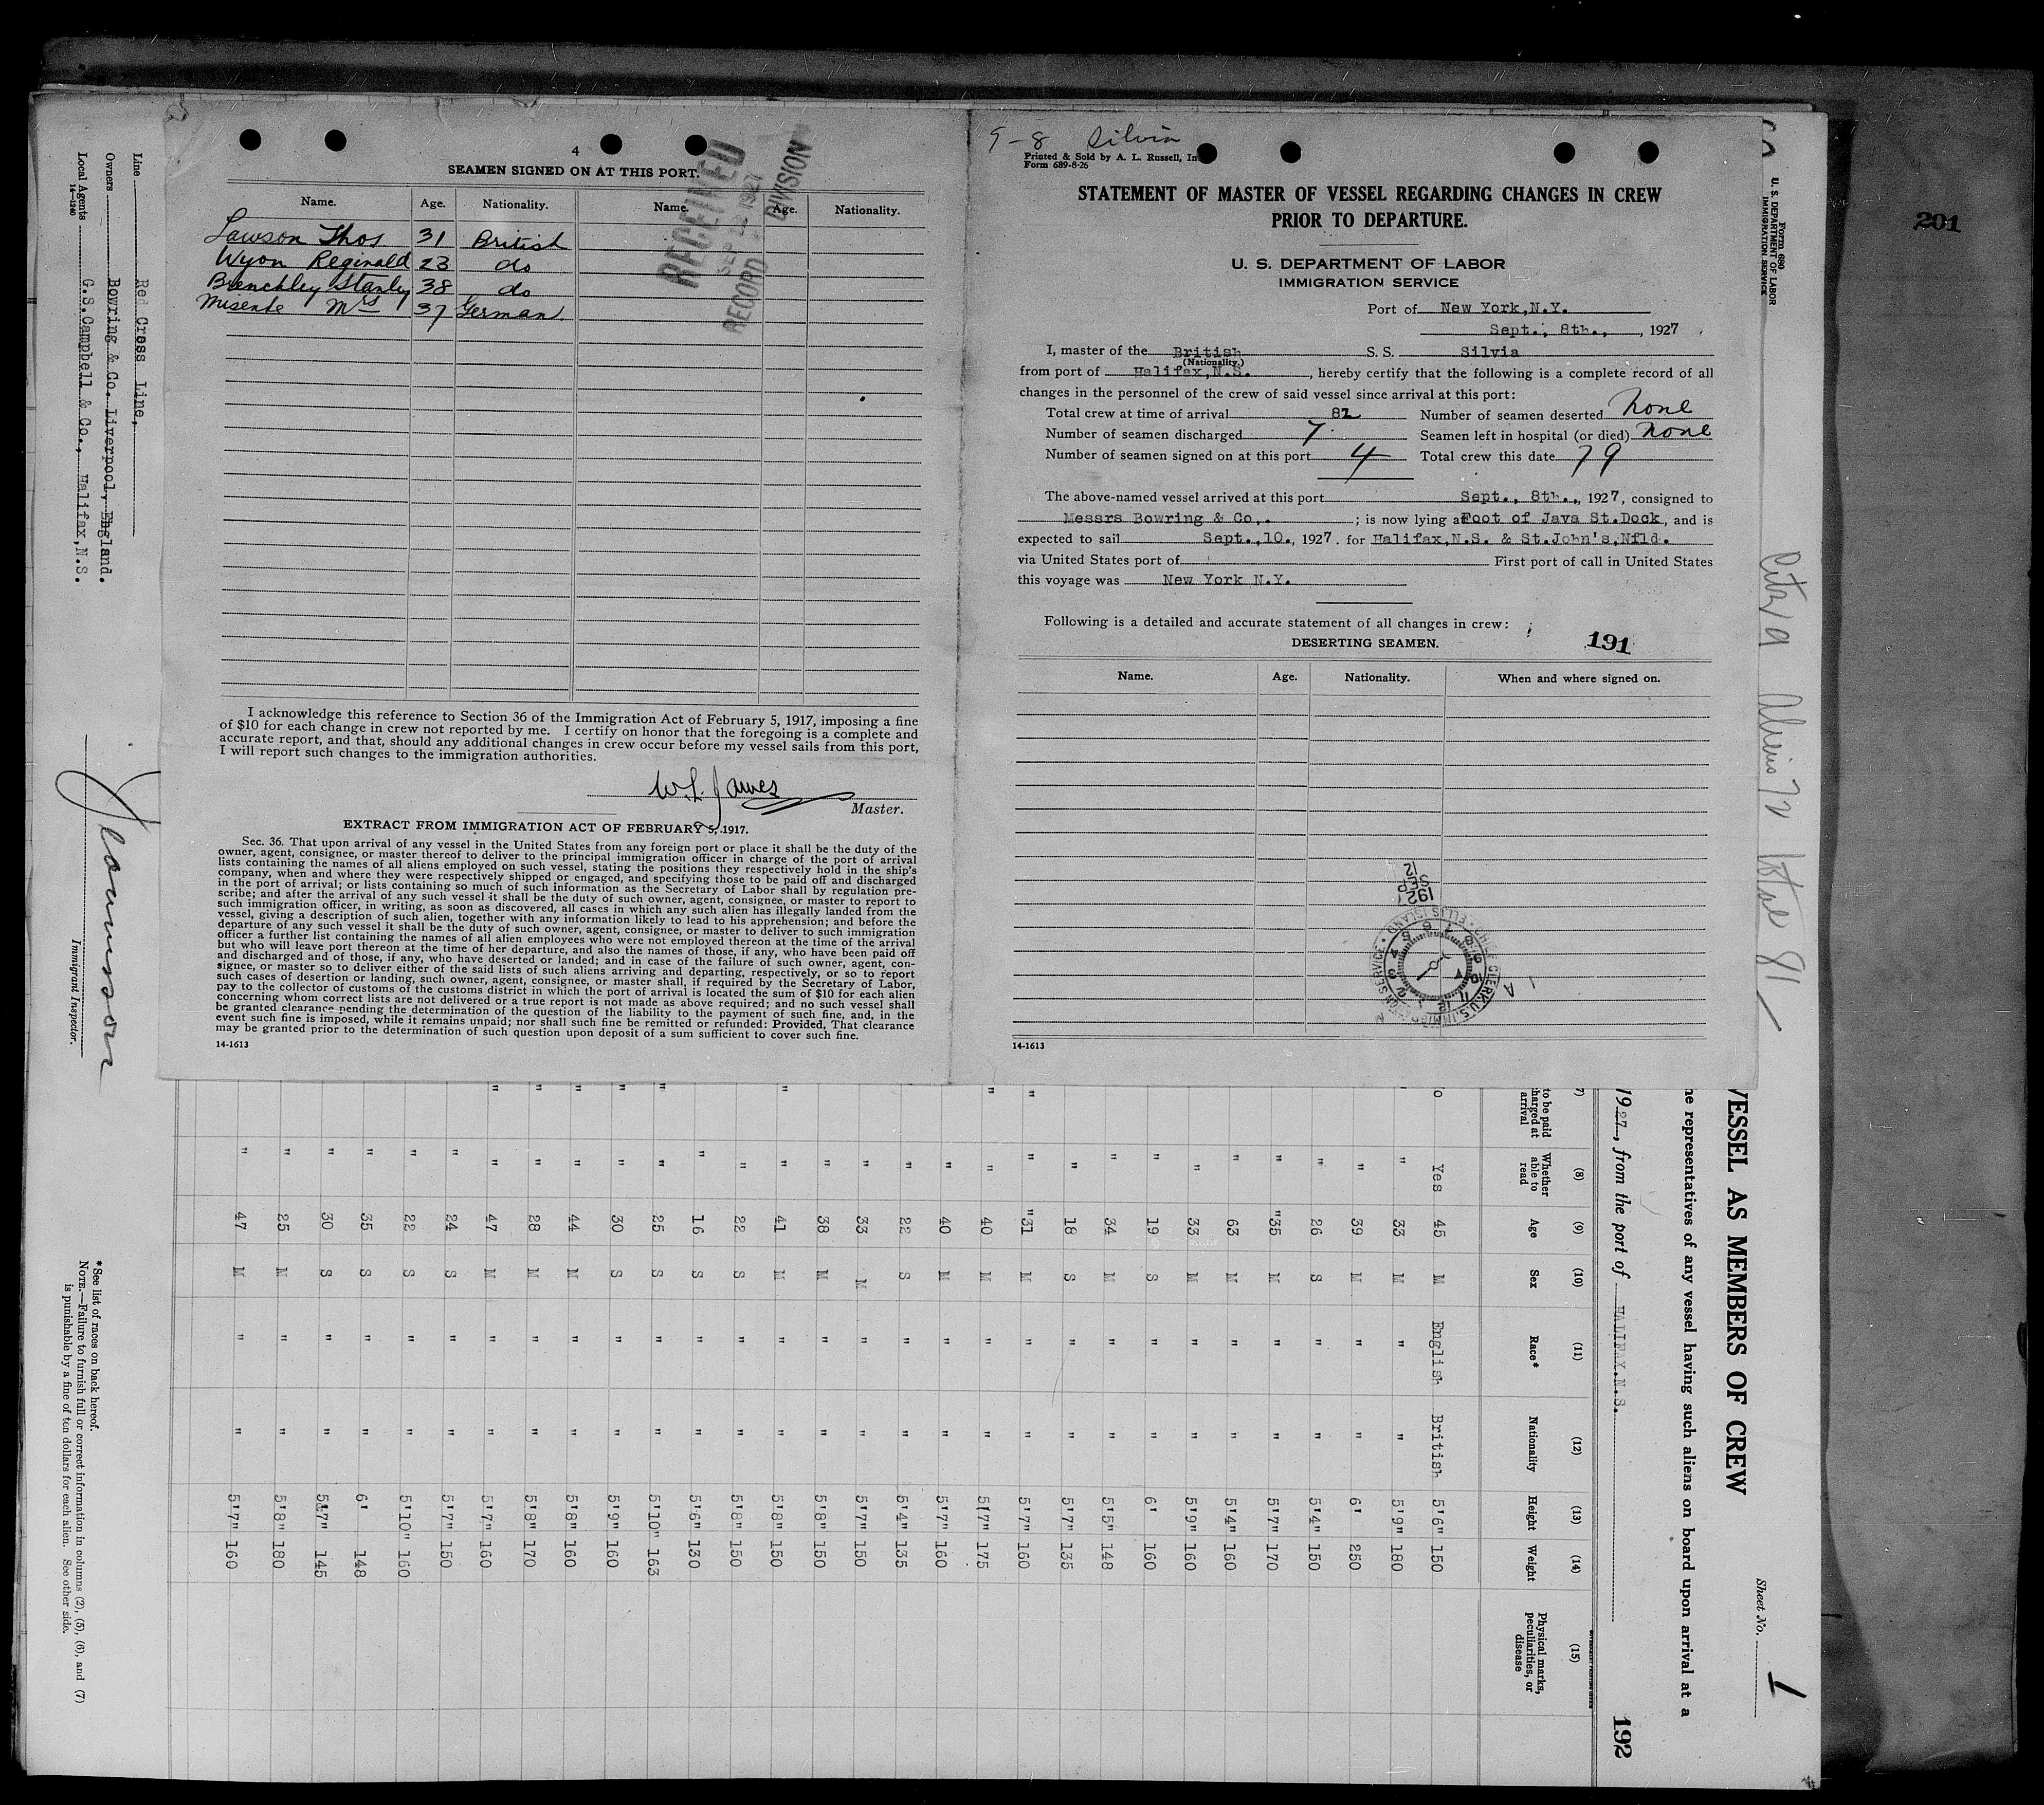 4
SEAMEN SIGNED ON AT THIS PORT.
Name. Age. Nationality. Name. Age. Nationality.
Lawson Thos 31 British
Wyon Reginald 23 do
Brenchley Stanley 38 do
Misente Mrs 37 German
RECEIVED
SEP 1927
RECORD DIVISION
I acknowledge this reference to Section 36 of the Immigration Act of February 5, 1917, imposing a fine
of $10 for each change in crew not reported by me. I certify on honor that the foregoing is a complete and
accurate report, and that, should any additional changes in crew occur before my vessel sails from this port,
I will report such changes to the immigration authorities.
W. L. James
Master.
EXTRACT FROM IMMIGRATION ACT OF FEBRUARY 5, 1917.
Sec. 36. That upon arrival of any vessel in the United States from any foreign port or place it shall be the duty of the
owner, agent, consignee, or master thereof to deliver to the principal immigration officer in charge of the port of arrival
lists containing the names of all aliens employed on such vessel, stating the positions they respectively hold in the ship's
company, when and where they were respectively shipped or engaged, and specifying those to be paid off and discharged
in the port of arrival; or lists containing so much of such information as the Secretary of Labor shall by regulation pre-
scribe; and after the arrival of any such vessel it shall be the duty of such owner, agent, consignee, or master to report to
such immigration officer, in writing, as soon as discovered, all cases in which any such alien has illegally landed from the
vessel, giving a description of such alien, together with any information likely to lead to his apprehension; and before the
departure of any such vessel it shall be the duty of such owner, agent, consignee, or master to deliver to such immigration
officer a further list containing the names of all alien employees who were not employed thereon at the time of the arrival
but who will leave port thereon at the time of her departure, and also the names of those, if any, who have been paid off
and discharged and of those, if any, who have deserted or landed; and in case of the failure of such owner, agent, con-
signee, or master so to deliver either of the said lists of such aliens arriving and departing, respectively, or so to report
such cases of desertion or landing, such owner, agent, consignee, or master shall, if required by the Secretary of Labor,
pay to the collector of customs of the customs district in which the port of arrival is located the sum of $10 for each alien
concerning whom correct lists are not delivered or a true report is not made as above required; and no such vessel shall
be granted clearance pending the determination of the question of the liability to the payment of such fine, and, in the
event such fine is imposed, while it remains unpaid; nor shall such fine be remitted or refunded: Provided, That clearance
may be granted prior to the determination of such question upon deposit of a sum sufficient to cover such fine.
14-1613
9-8 Silvia
Printed & Sold by A. L. Russell, In
Form 689-8-26
STATEMENT OF MASTER OF VESSEL REGARDING CHANGES IN CREW
PRIOR TO DEPARTURE.
U. S. DEPARTMENT OF LABOR
IMMIGRATION SERVICE
Port of New York,N.Y.
Sept., 8th., 1927
I, master of the British S. S. Silvia
(Nationality.)
from port of Halifax,N.S., hereby certify that the following is a complete record of all
changes in the personnel of the crew of said vessel since arrival at this port:
Total crew at time of arrival 82 Number of seamen deserted None
Number of seamen discharged 7. Seamen left in hospital (or died) None
Number of seamen signed on at this port 4 Total crew this date 79
The above-named vessel arrived at this port Sept., 8th., 1927, consigned to
Messrs Bowring & Co,. ; is now lying at Foot of Java St.Dock, and is
expected to sail Sept.,10., 1927. for Halifax,N.S. & St.John's,Nfld.
via United States port of First port of call in United States
this voyage was New York N.Y.
Following is a detailed and accurate statement of all changes in crew:
DESERTING SEAMEN. 191
Name. Age. Nationality. When and where signed on.
14-1613
201
Form 680
U. S. DEPARTMENT OF LABOR
IMMIGRATION SERVICE
Aliens 72 total 81
Line Red Cross Line,
Owners Bowring & Co. Liverpool, England.
Local Agents G.S.Campbell & Co., Halifax,N.S.
14-1240
Immigrant Inspector.
*See list of races on back hereof.
NOTE.—Failure to furnish full or correct information in columns (2), (5), (6), and (7)
is punishable by a fine of ten dollars for each alien. See other side.
Sheet No. 1
VESSEL AS MEMBERS OF CREW
he representatives of any vessel having such aliens on board upon arrival at a
1927, from the port of HALIFAX.N.S. 192
7) (8) (9) (10) (11) (12) (13) (14) (15)
to be paid harged at arrival Whether able to read Age Sex Race* Nationality Height Weight Physical marks, peculiarities, or disease
o Yes 45 M English British 5'6" 150
" " 33 M " " 5'9" 180
" 39 M " " 6' 250
" 26 S " " 5'4" 150
" "35 M " " 5'7" 170
" 63 M " " 5'4" 160
" 33 M " " 5'9" 160
" 19 S " " 6' 160
" 34 M " " 5'5" 148
" 18 S " " 5'7" 135
" " "31 M " " 5'7" 160
" " 40 M " " 5'7" 175
" 40 M " " 5'7" 160
" 22 S " " 5'4" 135
" 33 M " " 5'7" 150
" 38 M " " 5'8" 150
" " 41 M " " 5'8" 150
" 22 S " " 5'8" 150
" 16 S " " 5'6" 130
" " 25 S " " 5'10" 163
" " 30 S " " 5'9" 160
" " 44 M " " 5'8" 160
" " 28 M " " 5'8" 170
" " 47 M " " 5'7" 160
" 24 S " " 5'7" 150
" 22 S " " 5'10" 160
" 35 S " " 6' 148
" 30 S " " 5'7" 145
" 25 M " " 5'8" 180
" 47 M " " 5'7" 160